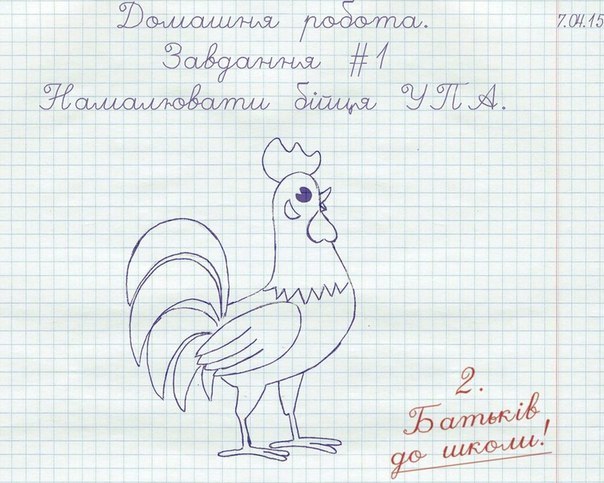 Домашня робота.
7.04.15
Завдання #1
Намалювати бійця УПА.
2.
Батьків
до школи!